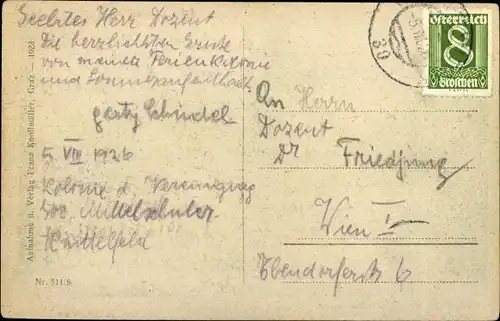 Geehrtes Herr Dozent
Die herzlichsten Grüße
von meiner Ferienkolonie
und Sommeraufenthalt.
Gerty Schindel
5 VIII 1926
Kolonie d. Vereinigung
soz. Mittelschüler
Knittelfeld
An Herrn
Dozent
Dr Friedjung
Wien I
Ebendorferstr. 6
Österreich
8
Groschen
30
Aufnahme u. Verlag Franz Knollmüller, Graz. — 1923
Nr. 511/S